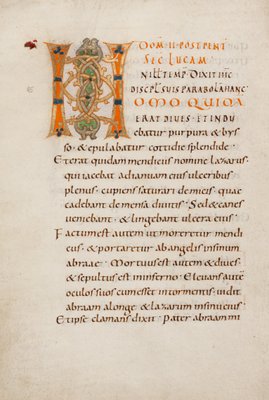 DOM·II·POST PENT
SEC LUCAM
IN ILL TEMP DIXIT IHC
DISCPLIS SUIS PARABOLAM HANC
HOMO QUIDA
ERAT DIVES· ET INDU
ebatur purpura & bys
so· & epulabatur cottidie splendide·
Et erat quidam mendicus nomine lazarus·
qui iacebat ad ianuam eius ulceribus
plenus· cupiens saturari de micis· quae
cadebant de mensa divitis· Sed & canes
veniebant· & lingebant ulcera eius
Factum est autem ut moreretur mendi
cus· & portaretur ab angelis in sinum
abrahae· Mortuus est autem & dives·
& sepultus est in inferno· Elevans autē
oculos suos cum esset in tormentis· vidit
abraam a longe· & lazarum in sinu eius·
Et ipse clamans dixit· Pater abraam mi